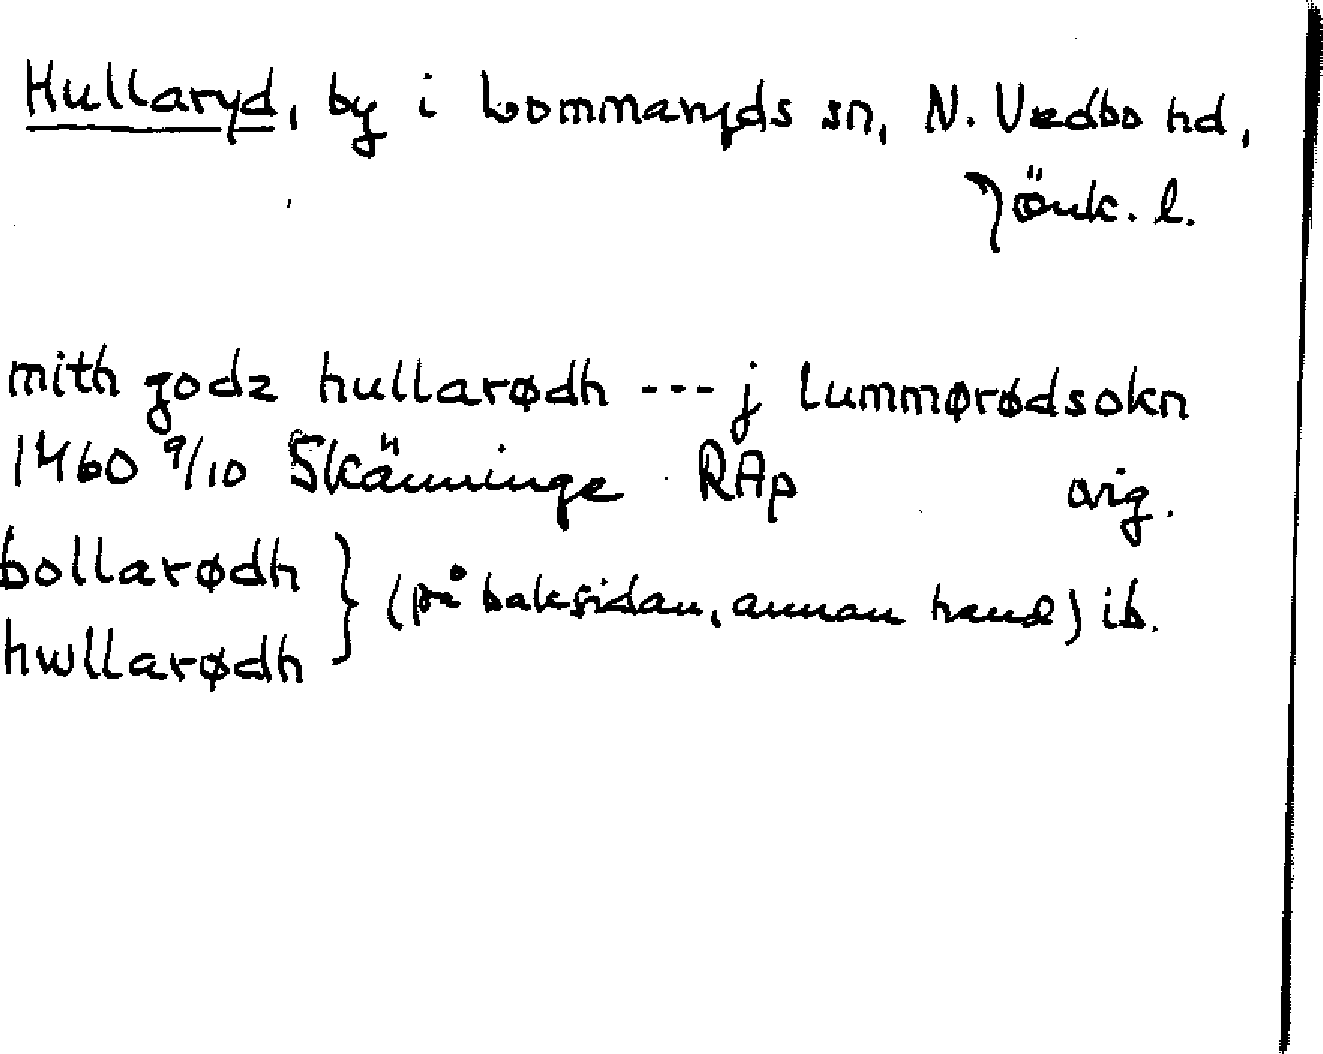 Hullaryd, by i Lommaryds sn, N. Vedbo hd,
Jönk. l.
mith godz hullarødh --- j lummørødsokn
1460 9/10 Skänninge RAp orig.
bollarødh
hwllarødh } (på baksidan, annan hand) ib.